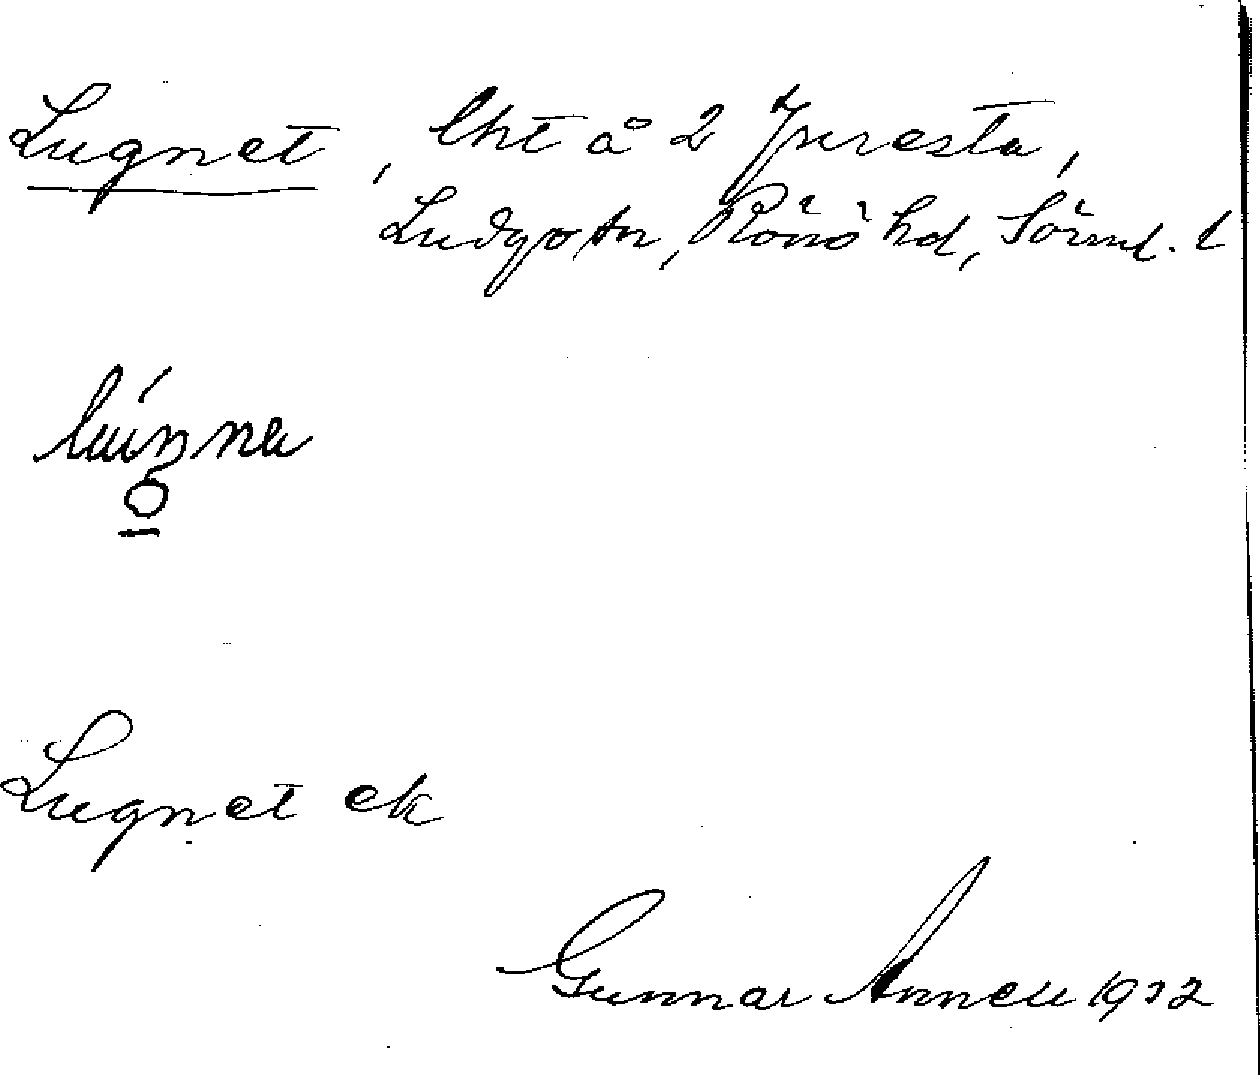 Lugnet, lht å 2 Juresta,
Ludgo sn, Rönö hd, Sörml. l
Lugnet ek
Gunnar Annell 1932